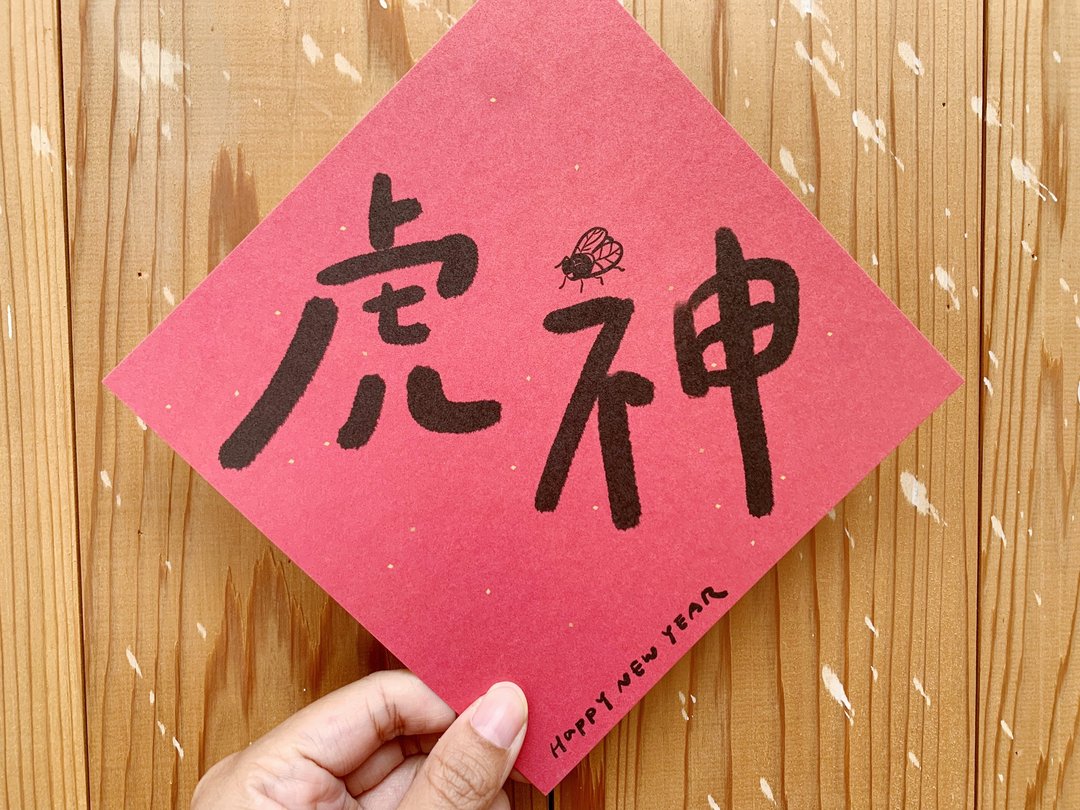 虎神
HAPPY NEW YEAR